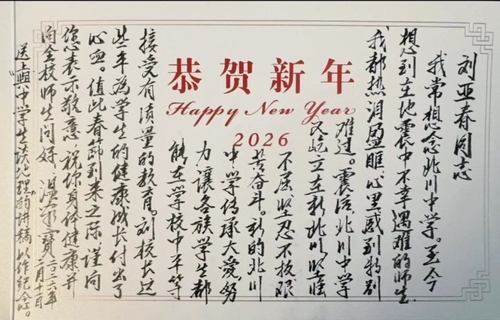 恭贺新年
Happy New Year
2026
刘亚春同志
我常想念北川中学。至今
想到在地震中不幸遇难的师生
我都热泪盈眶,心里感到特别
难过。震后,北川中学
又屹立在新北川
不屈坚忍不拔艰
苦奋斗。新的北川
中学传承大爱努
力让各族学生都
能在学校中平等
接受有质量的教育。刘校长这
些年为学生的健康成长付出了
心血。值此春节到来之际,谨向
您表示敬意,祝你身体健康并
向全校师生问好。温家宝 二〇二六年
二月十日
送上与中学生谈地理的讲稿,以作纪念。